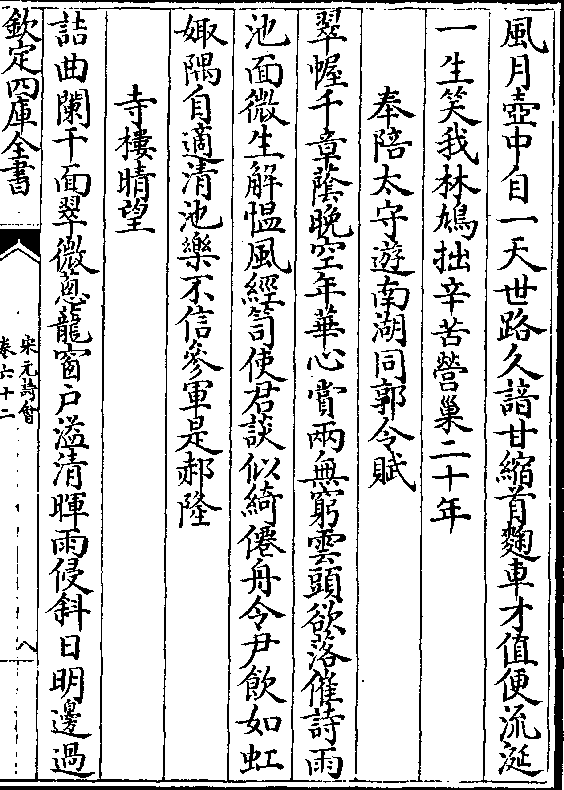 風月壺中自一天世路久諳甘縮首麴車才值便流涎
一生笑我林鳩拙辛苦營巢二十年
奉陪太守遊南湖同郭令賦
翠幄千章蔭晚空年華心賞兩無窮雲頭欲落催詩雨
池面微生解慍風經笥使君談似綺僊舟令尹飲如虹
娵隅自適清池樂不信參軍是郝隆
寺樓晴望
詰曲闌干面翠微蔥蘢窗戶溢清暉雨侵斜日明邊過
欽定四庫全書
宋元詩會
卷六十二
八